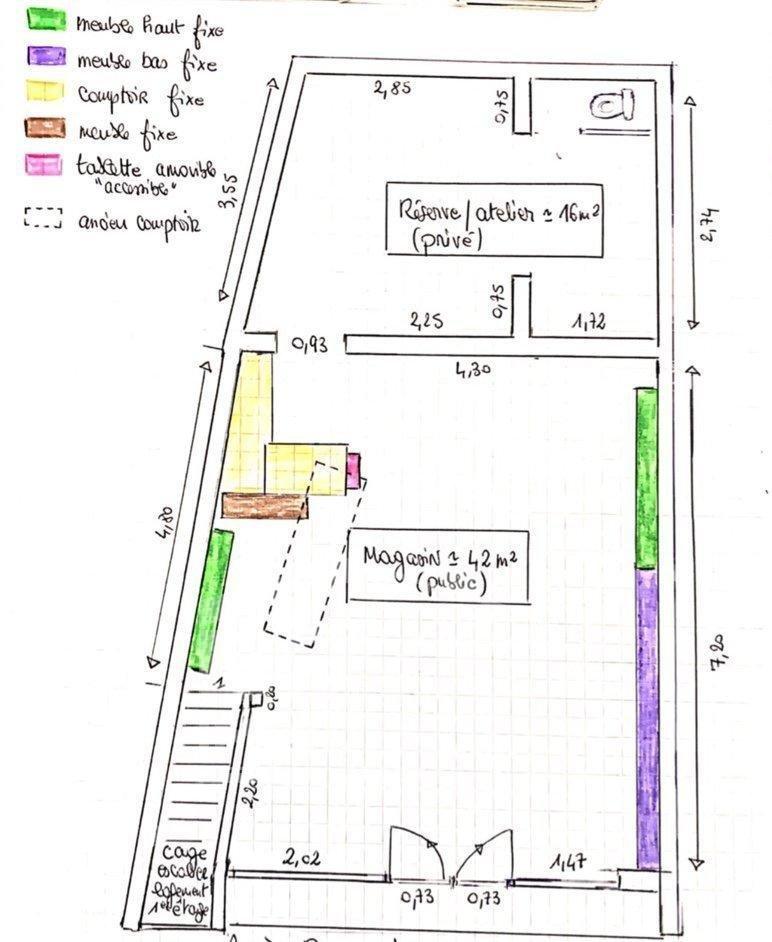 meuble haut fixe
meuble bas fixe
comptoir fixe
meuble fixe
tablette amovible
"accessible"
ancien comptoir
2,85
0,75
3,55
2,74
Réserve/atelier ≃ 16m²
(privé)
0,75
2,25
1,72
0,93
4,30
4,80
Magasin ≃ 42m²
(public)
7,20
1
0,20
2,20
cage
escalier
logement
1er étage
2,02
1,47
0,73
0,73